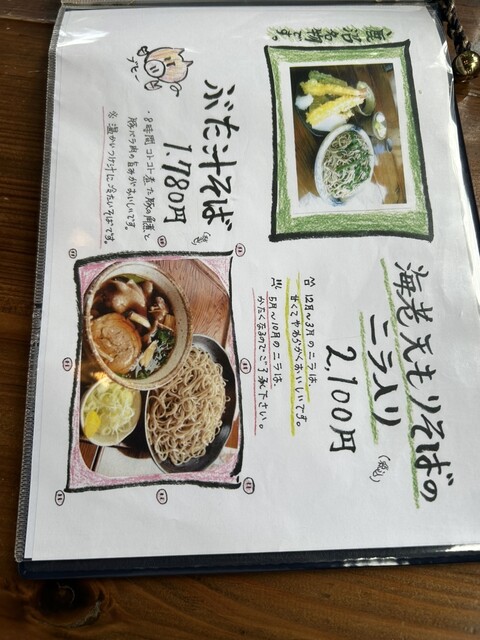 海老天もりそばの
ニラ入り
2,100円
(税込)
12月〜3月のニラは、
甘くてやわらかくおいしいです。
5月〜10月のニラは、
かたくなるのでご了承下さい。
ぶた汁そば
1,780円
(税込)
・8時間コトコト煮た豚の角煮と
豚バラ肉の旨みがおいしいです。
※温かいつけ汁に冷たいそばです。
名物です。